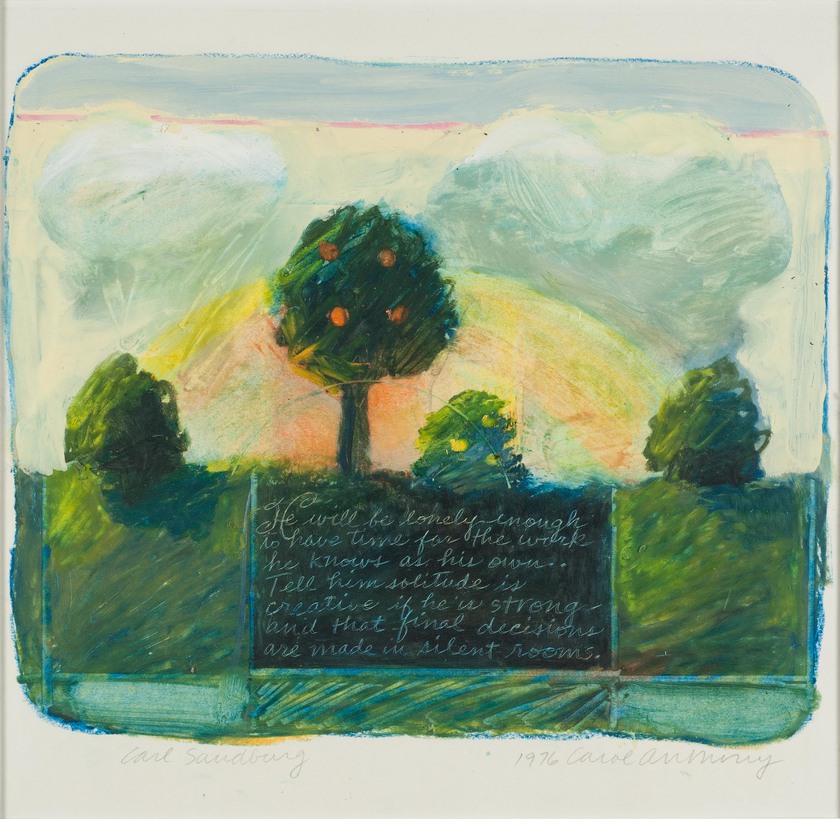 He will be lonely enough
to have time for the work
he knows as his own..
Tell him solitude is
creative if he is strong
and that final decisions
are made in silent rooms.
Carl Sandburg
1976 Carol Anthony